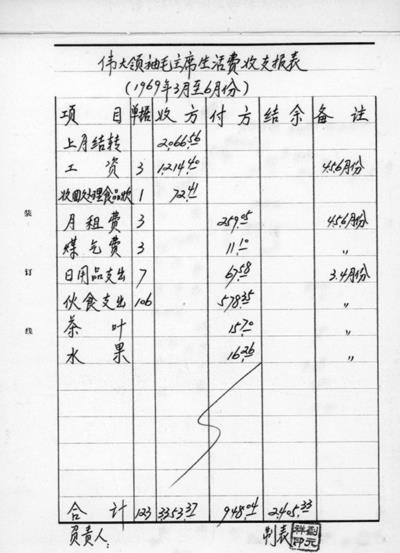 伟大领袖毛主席生活费收支报表
(1969年3月至6月份)
项目 单据 收方 付方 结余 备注
上月结转 2,066.56
工资 3 1,214.40 4.5.6月份
收回处理食品款 1 72.41
月租费 3 259.05 4.5.6月份
煤气费 3 11.10 〃
日用品支出 7 67.58 3.4月份
伙食支出 106 578.35 〃
茶叶 15.70 〃
水果 16.26 〃
合计 123 3353.37 948.04 2,405.33
负责人: 制表
装订线